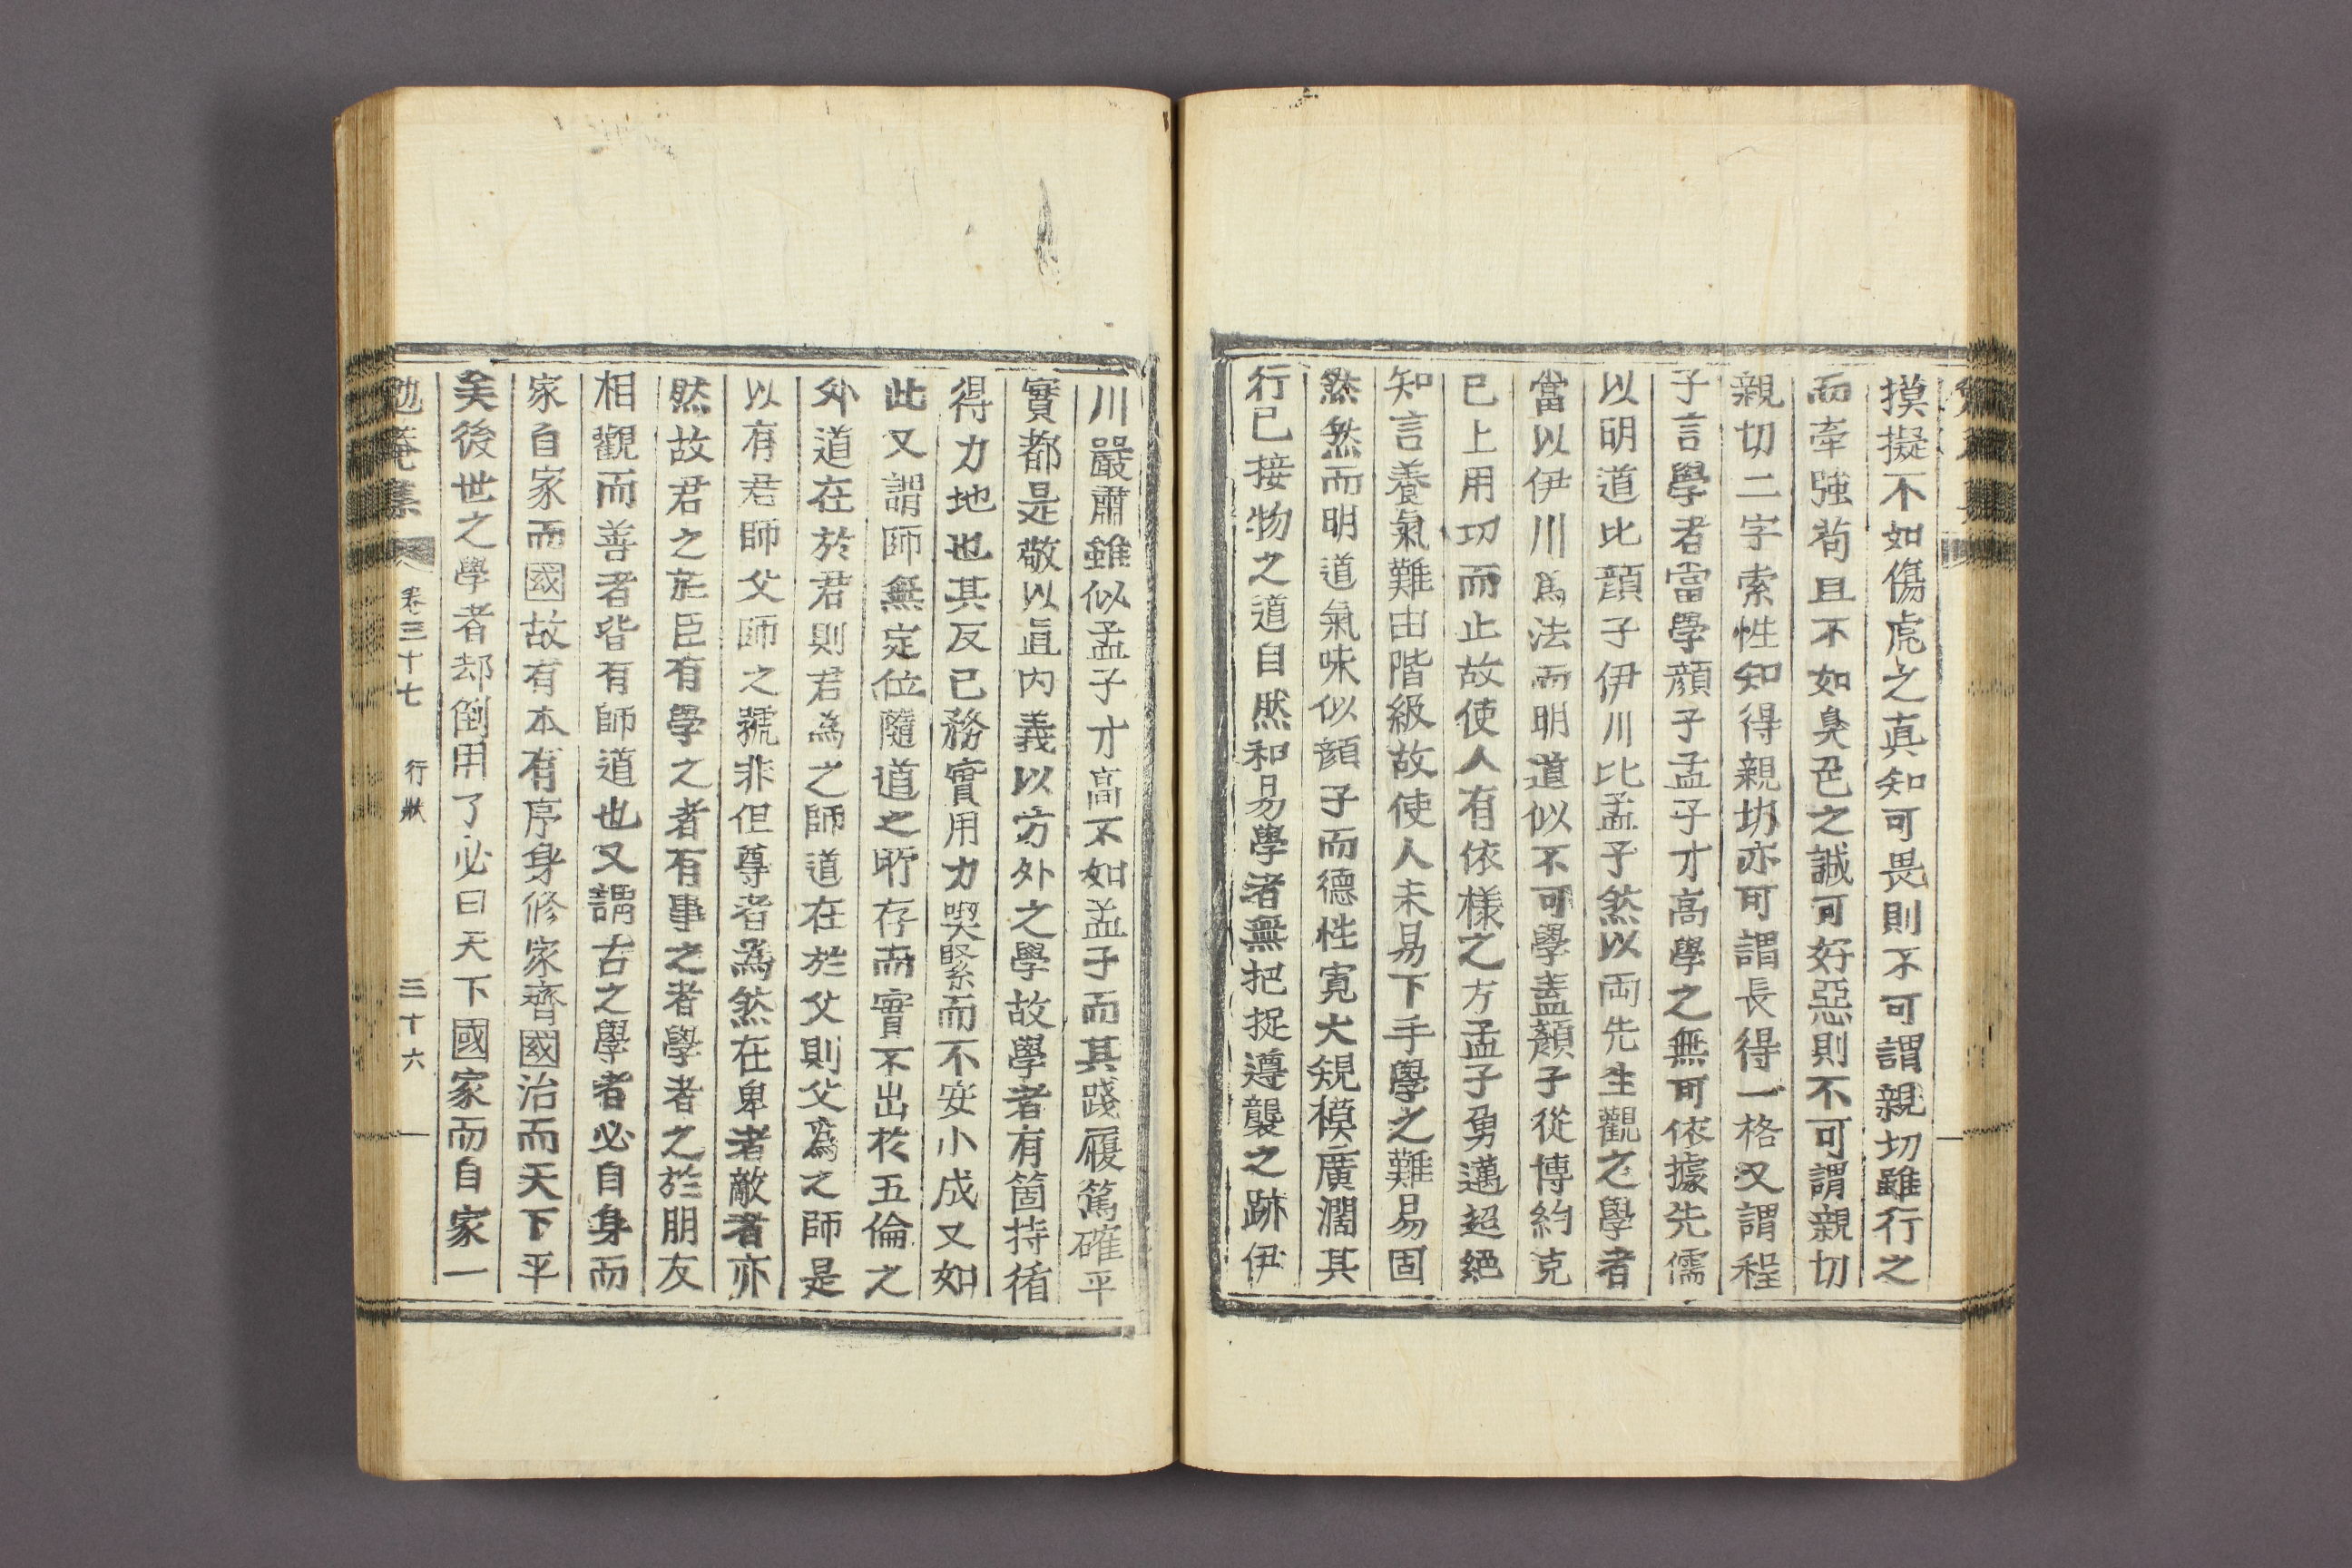 摸擬不如傷虎之真知可畏則不可謂親切雖行之
而牽強苟且不如臭色之誠可好惡則不可謂親切
親切二字索性知得親切亦可謂長得一格又謂程
子言學者當學顔子孟子才高學之無可依據先儒
以明道比顔子伊川比孟子然以両先生觀之學者
當以伊川爲法而明道似不可學盖顔子從博約克
已上用切而止故使人有依様之方孟子勇邁超絕
知言養氣難由階級故使人未易下手學之難易固
然然而明道氣味似顔子而德性寬大規模廣濶其
行已接物之道自然和易學者無把捉遵襲之跡伊
川嚴肅雖似孟子才高不如孟子而其踐履篤確平
實都是敬以直內義以方外之學故學者有箇持循
得力地也其反已務實用力喫緊而不安小成又如
此又謂師無定位隨道之所存而實不出於五倫之
外道在於君則君為之師道在於父則父爲之師是
以有君師父師之號非但尊者為然在卑者敵者亦
然故君之於臣有學之者有事之者學者之於朋友
相觀而善者皆有師道也又謂古之學者必自身而
家自家而國故有本有序身修家齊國治而天下平
矣後世之學者却倒用了必曰天下國家而自家一
勉菴集 卷三十七 行狀 三十六